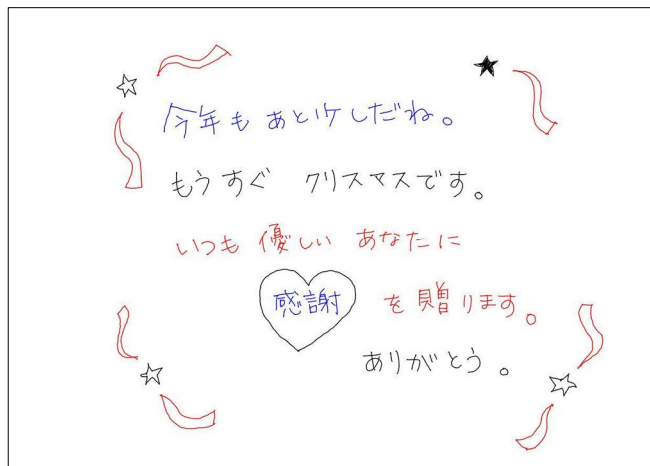 今年もあと少しだね。
もうすぐ クリスマスです。
いつも 優しい あなたに
感謝 を贈ります。
ありがとう。